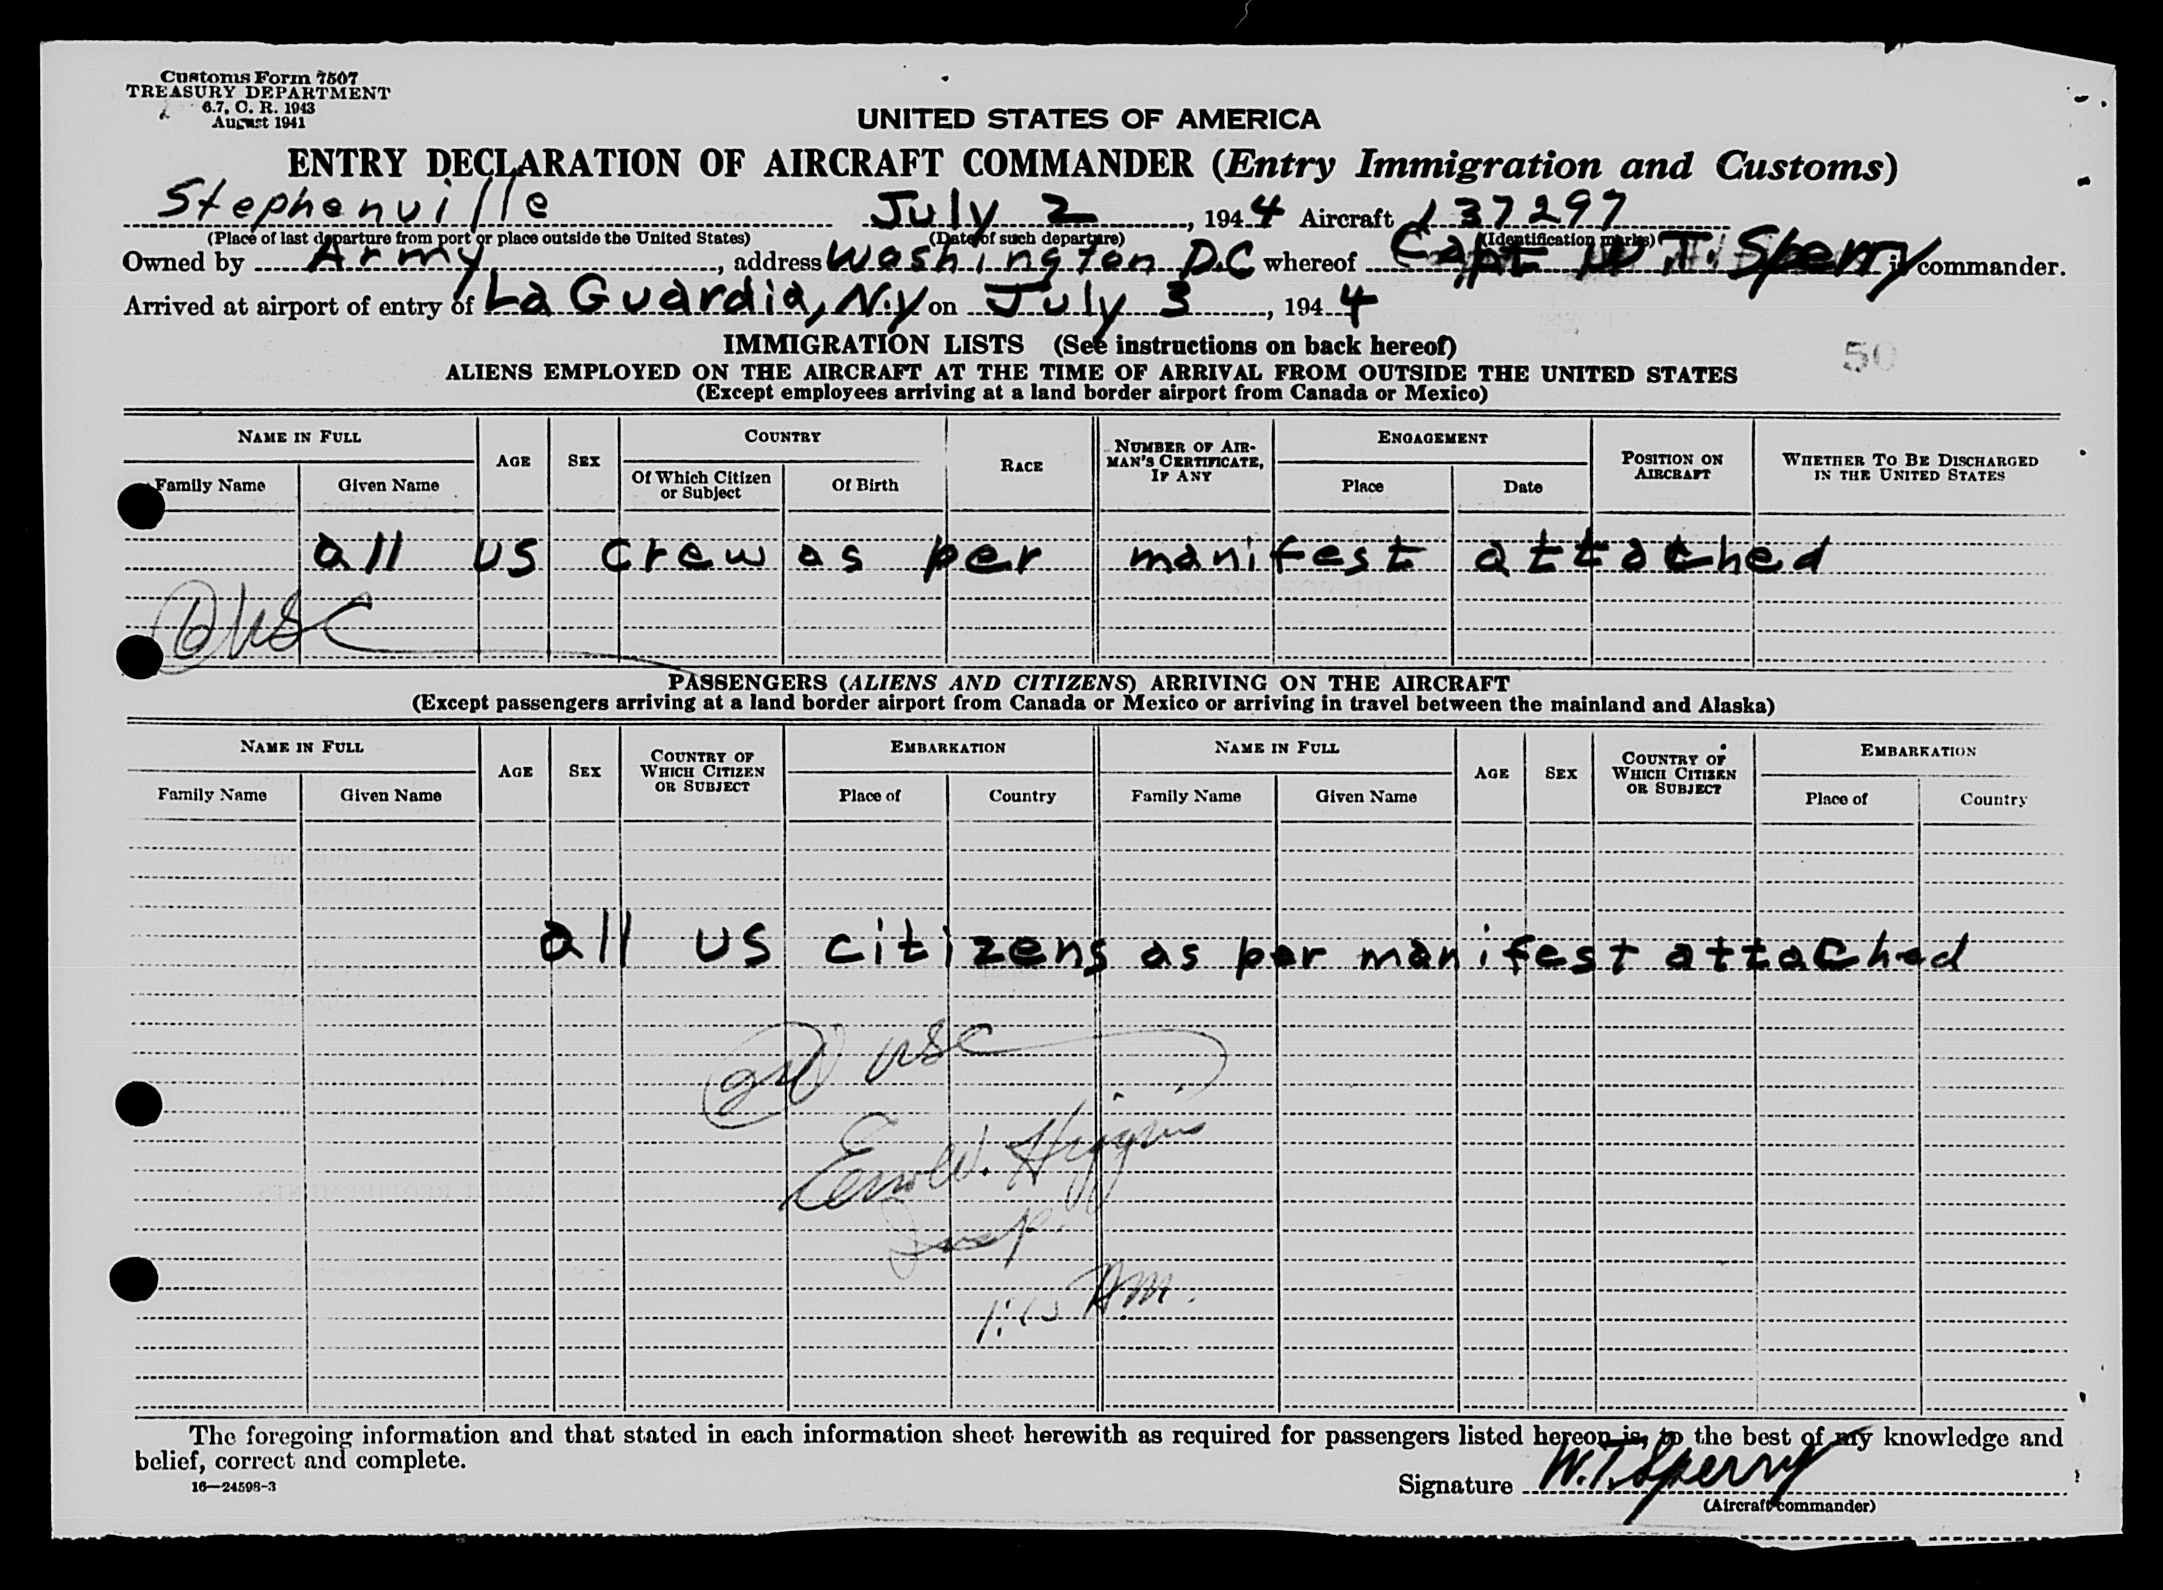 Customs Form 7507
TREASURY DEPARTMENT
6.7, C. R. 1943
August 1941
UNITED STATES OF AMERICA
ENTRY DECLARATION OF AIRCRAFT COMMANDER (Entry Immigration and Customs)
Stephenville July 2, 1944 Aircraft 137297
(Place of last departure from port or place outside the United States) (Date of such departure) (Identification marks)
Owned by Army, address Washington D.C whereof Capt W T. Sperry is commander.
Arrived at airport of entry of La Guardia, N.Y on July 3, 1944
IMMIGRATION LISTS (See instructions on back hereof)
50
ALIENS EMPLOYED ON THE AIRCRAFT AT THE TIME OF ARRIVAL FROM OUTSIDE THE UNITED STATES
(Except employees arriving at a land border airport from Canada or Mexico)
NAME IN FULL AGE SEX COUNTRY RACE NUMBER OF AIRMAN'S CERTIFICATE, IF ANY ENGAGEMENT POSITION ON AIRCRAFT WHETHER TO BE DISCHARGED IN THE UNITED STATES
Family Name Given Name Of Which Citizen or Subject Of Birth Place Date
all US crew as per manifest attached
USC
PASSENGERS (ALIENS AND CITIZENS) ARRIVING ON THE AIRCRAFT
(Except passengers arriving at a land border airport from Canada or Mexico or arriving in travel between the mainland and Alaska)
NAME IN FULL AGE SEX COUNTRY OF WHICH CITIZEN OR SUBJECT EMBARKATION NAME IN FULL AGE SEX COUNTRY OF WHICH CITIZEN OR SUBJECT EMBARKATION
Family Name Given Name Place of Country Family Name Given Name Place of Country
all US citizens as per manifest attached
USC
W. Higgins
Insp.
AM.
The foregoing information and that stated in each information sheet herewith as required for passengers listed hereon is, to the best of my knowledge and
belief, correct and complete.
16—24598-3
Signature W.T. Sperry
(Aircraft commander)